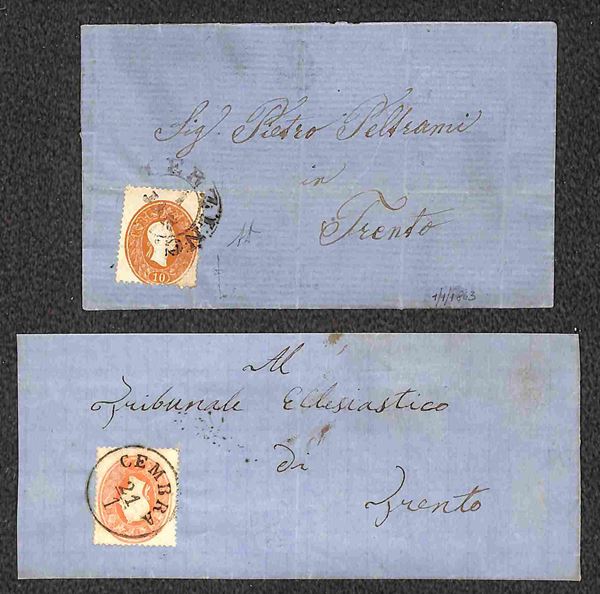 Sig. Pietro Peltrami
in
Trento
10
1/1/1863
Al
Tribunale Ecclesiastico
di
Trento
CEMBRA
21
1